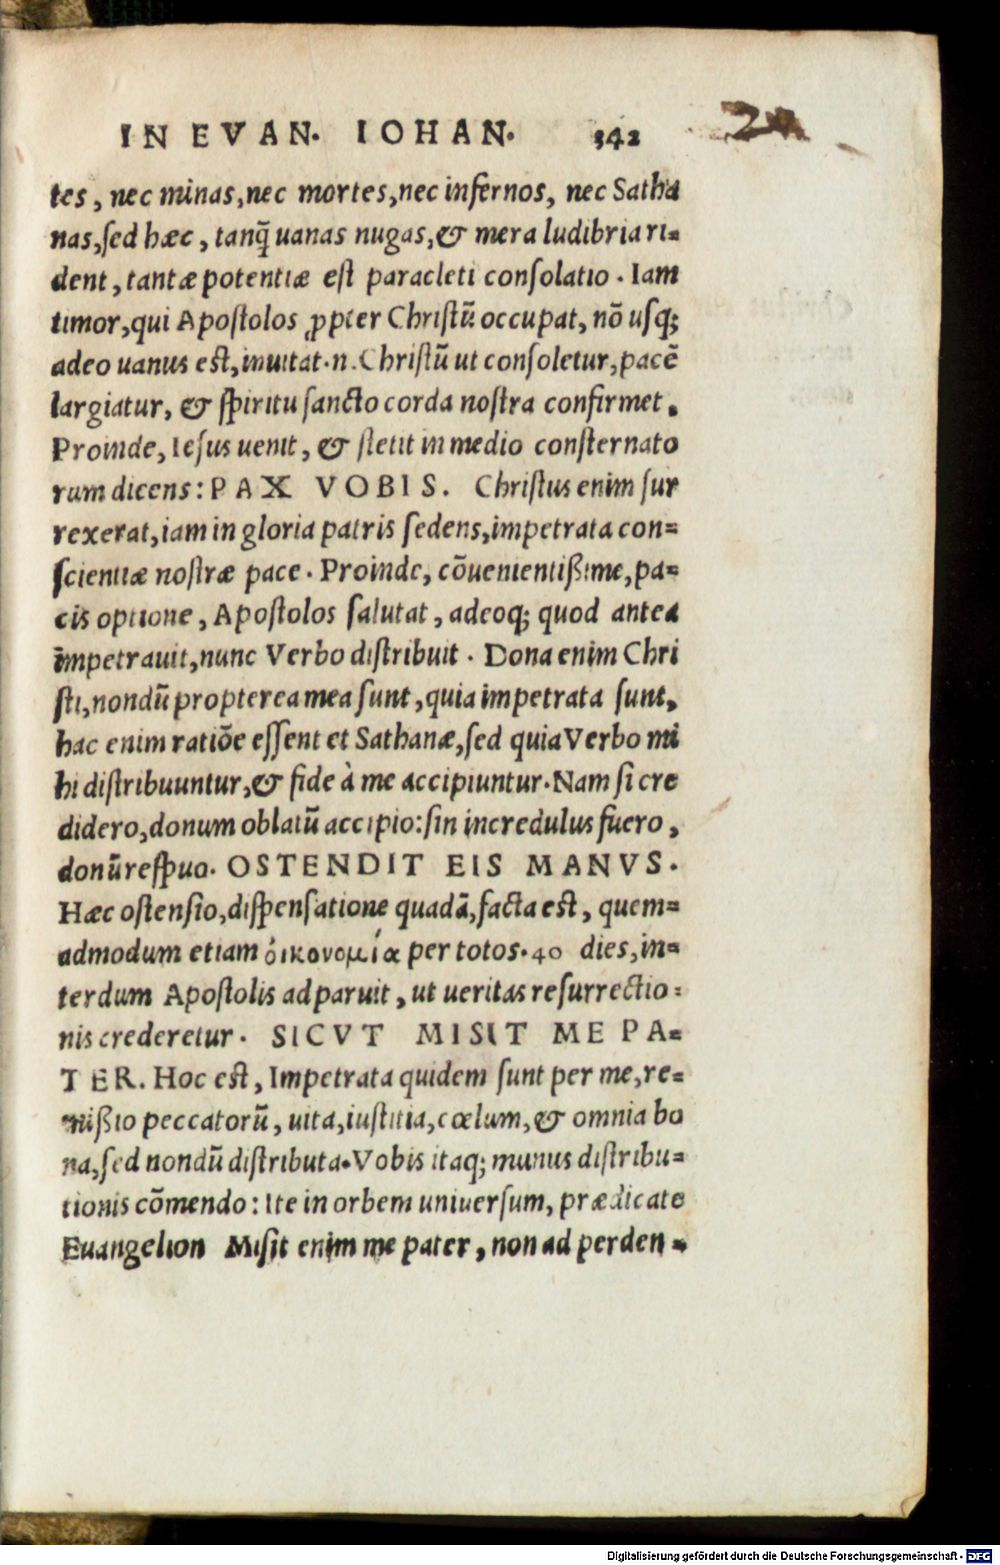 IN EVAN. IOHAN. 342
20
tes, nec minas, nec mortes, nec infernos, nec Satha
nas, sed hæc, tanq̃ uanas nugas, & mera ludibria ri=
dent, tantæ potentiæ est paracleti consolatio. Iam
timor, qui Apostolos ꝓpter Christũ occupat, nõ usq;
adeo uanus est, inuitat .n. Christũ ut consoletur, pacẽ
largiatur, & spiritu sancto corda nostra confirmet.
Proinde, Iesus uenit, & stetit in medio consternato
rum dicens: PAX VOBIS. Christus enim sur
rexerat, iam in gloria patris sedens, impetrata con=
scientiæ nostræ pace. Proinde, cõuenientißime, pa=
cis optione, Apostolos salutat, adeoq; quod antea
impetrauit, nunc Verbo distribuit. Dona enim Chri
sti, nondũ propterea mea sunt, quia impetrata sunt,
hac enim ratiõe essent et Sathanæ, sed quia Verbo mi
hi distribuuntur, & fide à me accipiuntur. Nam si cre
didero, donum oblatũ accipio: sin incredulus fuero,
donũ respuo. OSTENDIT EIS MANVS.
Hæc ostensio, dispensatione quadã, facta est, quem=
admodum etiam ὀικονομία per totos .40 dies, in=
terdum Apostolis adparuit, ut ueritas resurrectio=
nis crederetur. SICVT MISIT ME PA=
TER. Hoc est, Impetrata quidem sunt per me, re=
mißio peccatorũ, uita, iustitia, cœlum, & omnia bo
na, sed nondũ distributa. Vobis itaq; munus distribu=
tionis cõmendo: Ite in orbem uniuersum, prædicate
Euangelion Misit enim me pater, non ad perden=
Digitalisierung gefördert durch die Deutsche Forschungsgemeinschaft - DFG